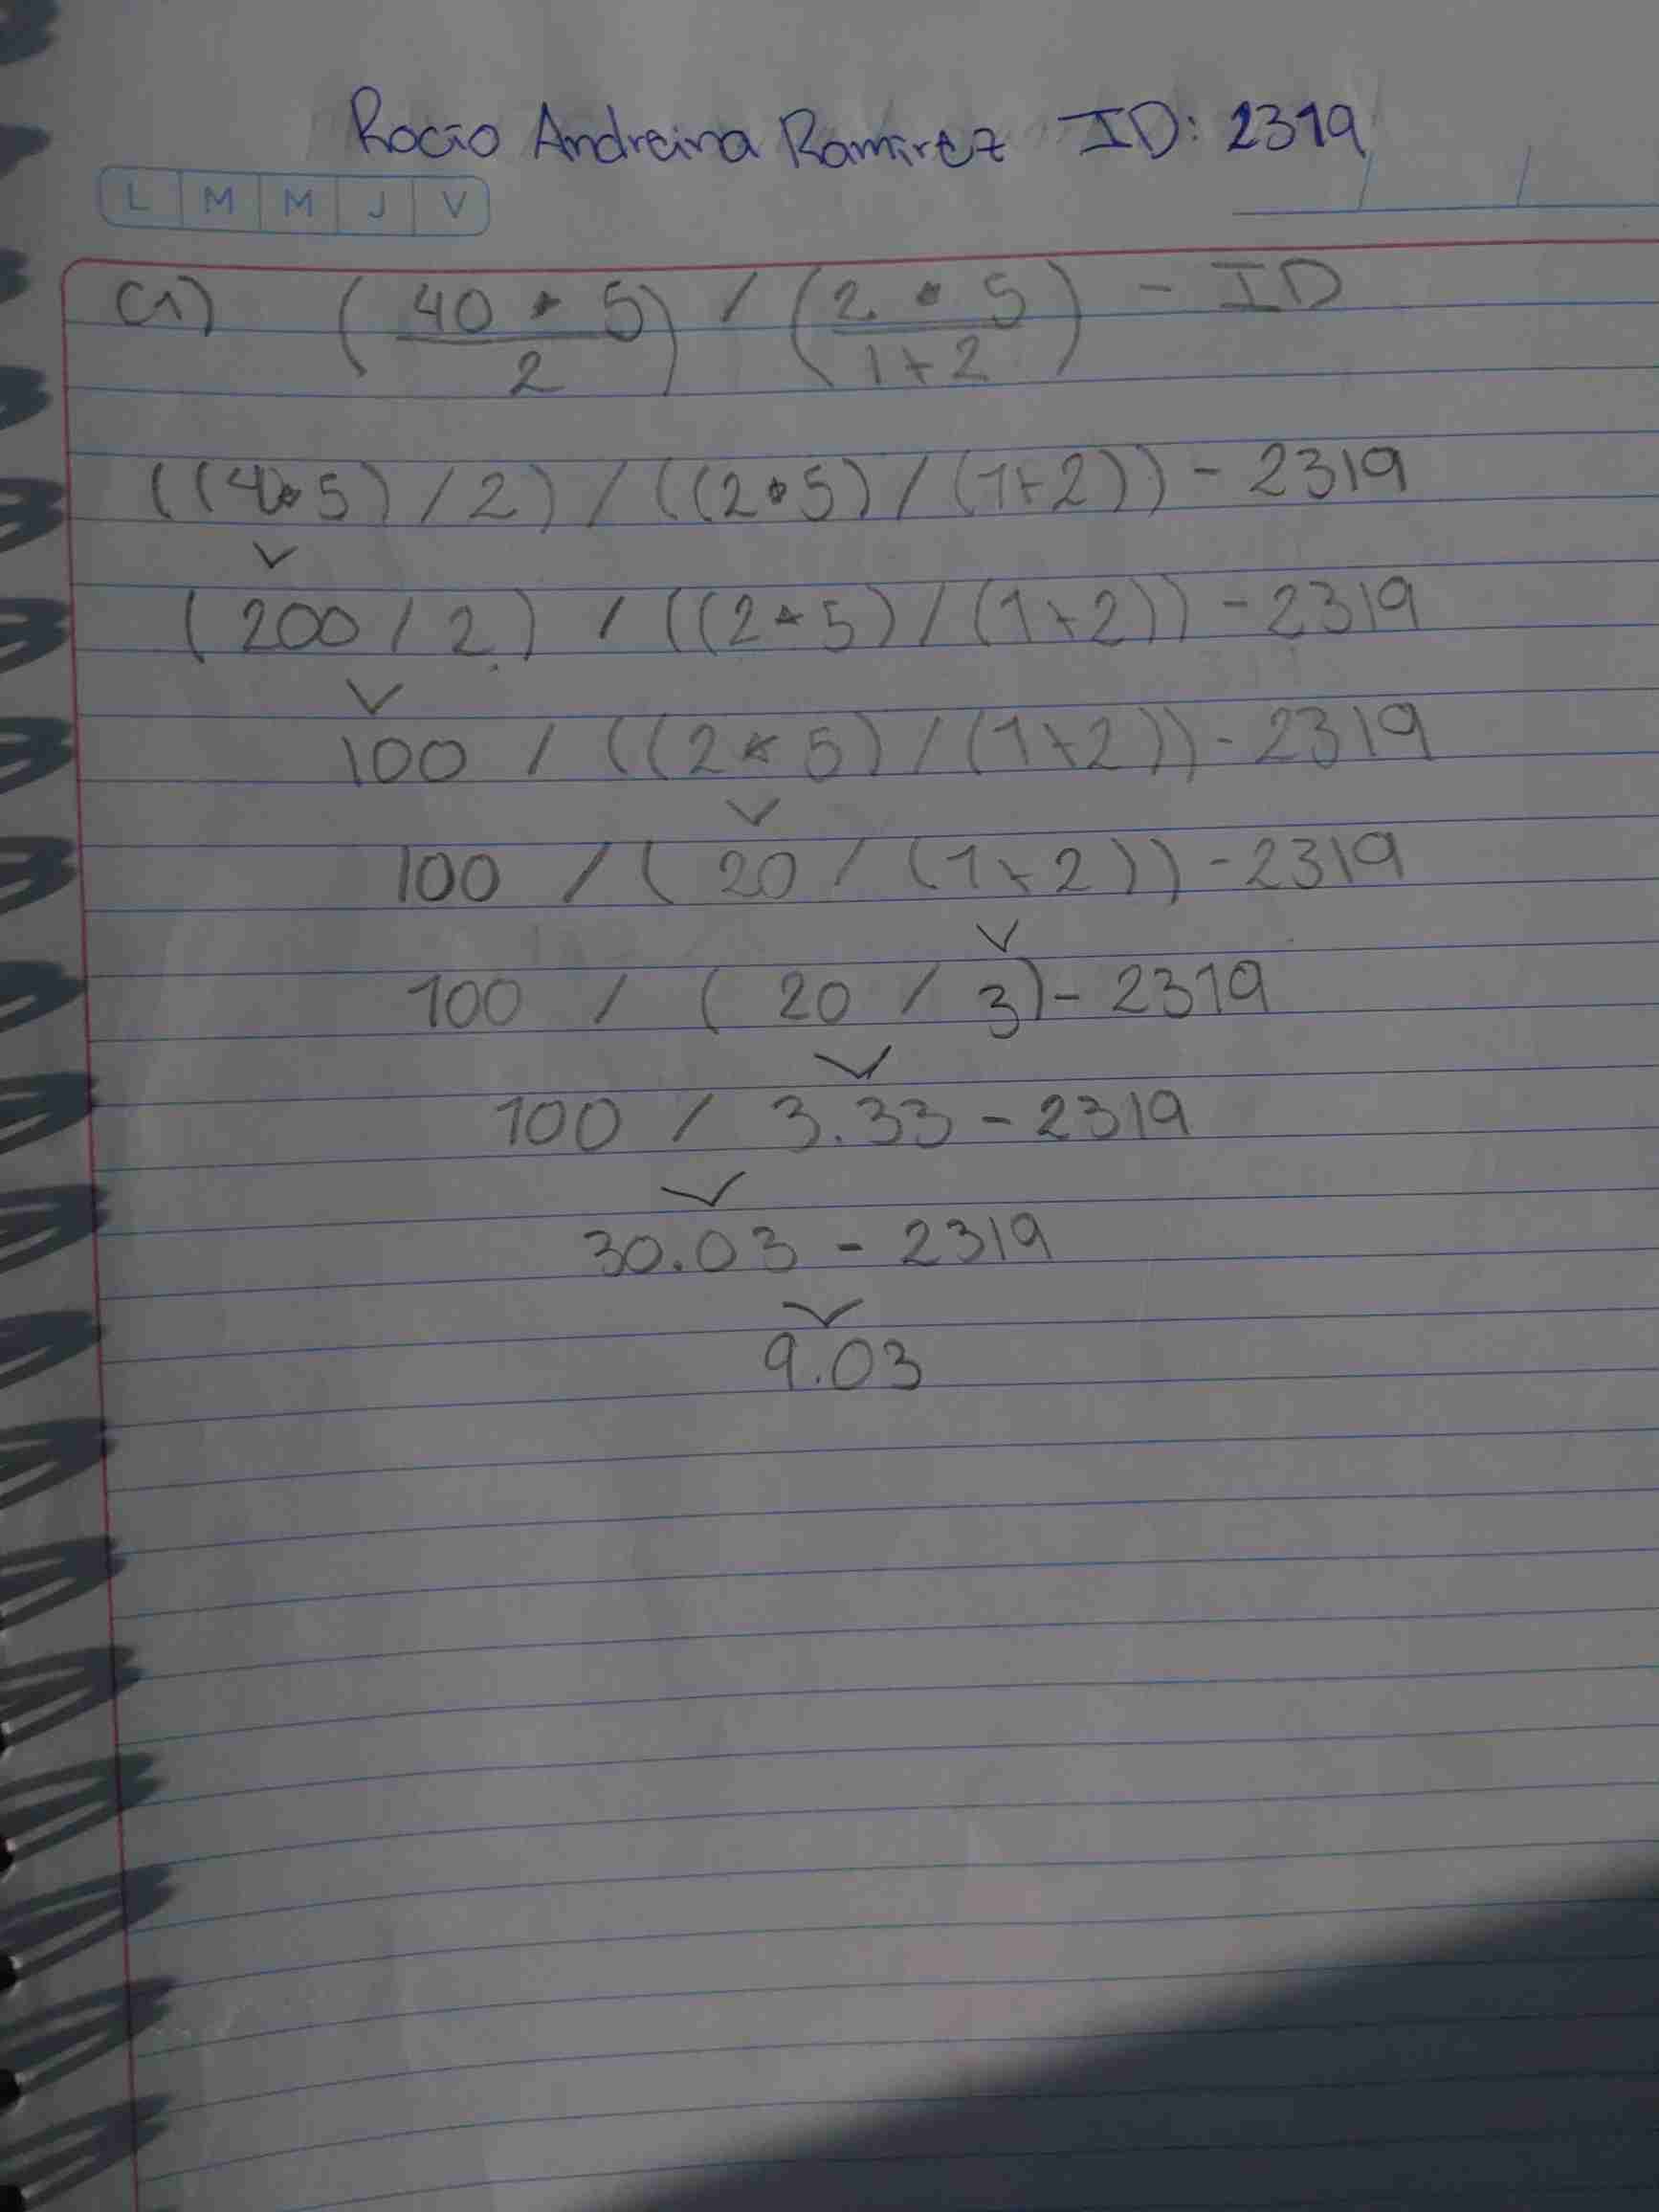 Rocio Andreina Ramirez ID: 2319
L M M J V
C1) (40 * 5 / 2) / (2 * 5 / 1+2) - ID
((40*5) / 2) / ((2*5) / (1+2)) - 2319
(200 / 2) / ((2*5) / (1+2)) - 2319
100 / ((2*5) / (1+2)) - 2319
100 / (20 / (1+2)) - 2319
100 / (20 / 3) - 2319
100 / 3.33 - 2319
30.03 - 2319
9.03